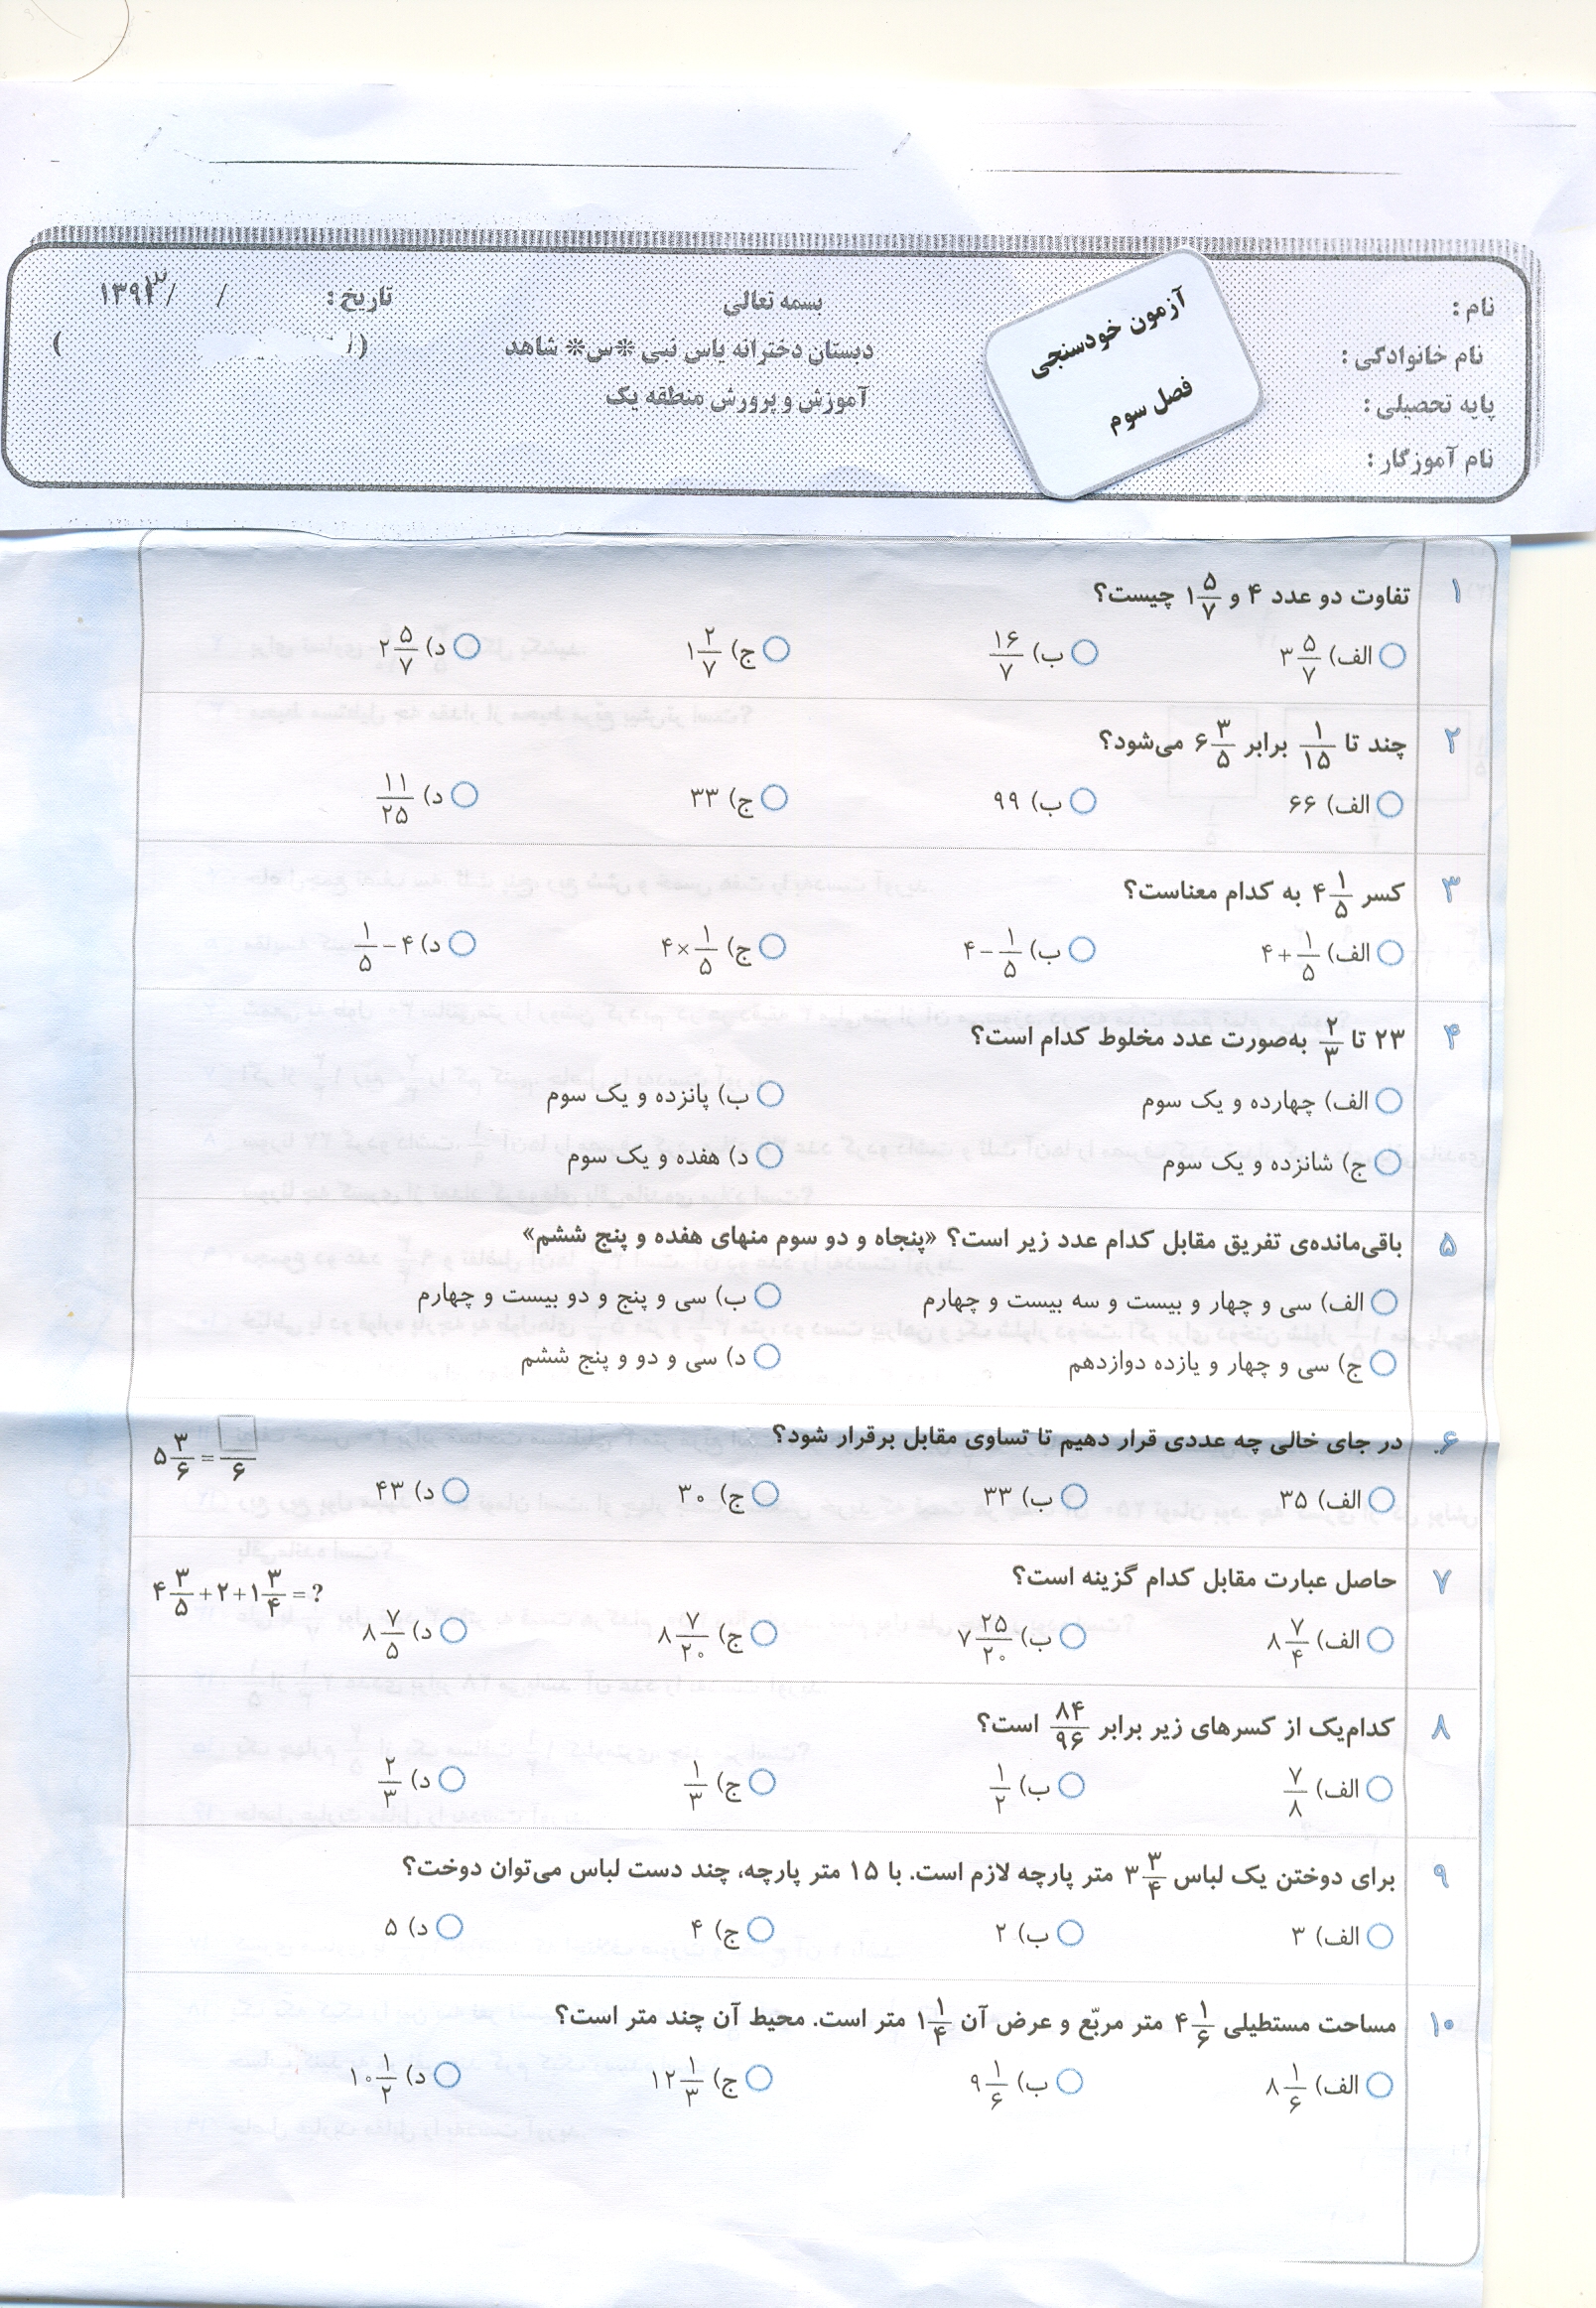 نام :
نام خانوادگی :
پایه تحصیلی :
نام آموزگار :
آزمون خودسنجی
فصل سوم
بسمه تعالی
دبستان دخترانه یاس نبی *س* شاهد
آموزش و پرورش منطقه یک
تاریخ : / /۱۳۹۳
( / )
۱ تفاوت دو عدد ۴ و ۱ ۵/۷ چیست؟
الف) ۳ ۵/۷ ب) ۱۶/۷ ج) ۱ ۲/۷ د) ۲ ۵/۷
۲ چند تا ۱/۱۵ برابر ۶ ۳/۵ می‌شود؟
الف) ۶۶ ب) ۹۹ ج) ۳۳ د) ۱۱/۲۵
۳ کسر ۴ ۱/۵ به کدام معناست؟
الف) ۴+۱/۵ ب) ۴−۱/۵ ج) ۴×۱/۵ د) ۱/۵−۴
۴ ۲۳ تا ۲/۳ به‌صورت عدد مخلوط کدام است؟
الف) چهارده و یک سوم ب) پانزده و یک سوم
ج) شانزده و یک سوم د) هفده و یک سوم
۵ باقی‌مانده‌ی تفریق مقابل کدام عدد زیر است؟ «پنجاه و دو سوم منهای هفده و پنج ششم»
الف) سی و چهار و بیست و سه بیست و چهارم ب) سی و پنج و دو بیست و چهارم
ج) سی و چهار و یازده دوازدهم د) سی و دو و پنج ششم
۶ در جای خالی چه عددی قرار دهیم تا تساوی مقابل برقرار شود؟ ۵ ۳/۶ = □/۶
الف) ۳۵ ب) ۳۳ ج) ۳۰ د) ۴۳
۷ حاصل عبارت مقابل کدام گزینه است؟ ۴ ۳/۵ + ۲ + ۱ ۳/۴ = ?
الف) ۸ ۷/۴ ب) ۷ ۲۵/۲۰ ج) ۸ ۷/۲۰ د) ۸ ۷/۵
۸ کدام‌یک از کسرهای زیر برابر ۸۴/۹۶ است؟
الف) ۷/۸ ب) ۱/۲ ج) ۱/۳ د) ۲/۳
۹ برای دوختن یک لباس ۳ ۳/۴ متر پارچه لازم است. با ۱۵ متر پارچه، چند دست لباس می‌توان دوخت؟
الف) ۳ ب) ۲ ج) ۴ د) ۵
۱۰ مساحت مستطیلی ۴ ۱/۶ متر مربّع و عرض آن ۱ ۱/۴ متر است. محیط آن چند متر است؟
الف) ۸ ۱/۶ ب) ۹ ۱/۶ ج) ۱۲ ۱/۳ د) ۱۰ ۱/۲